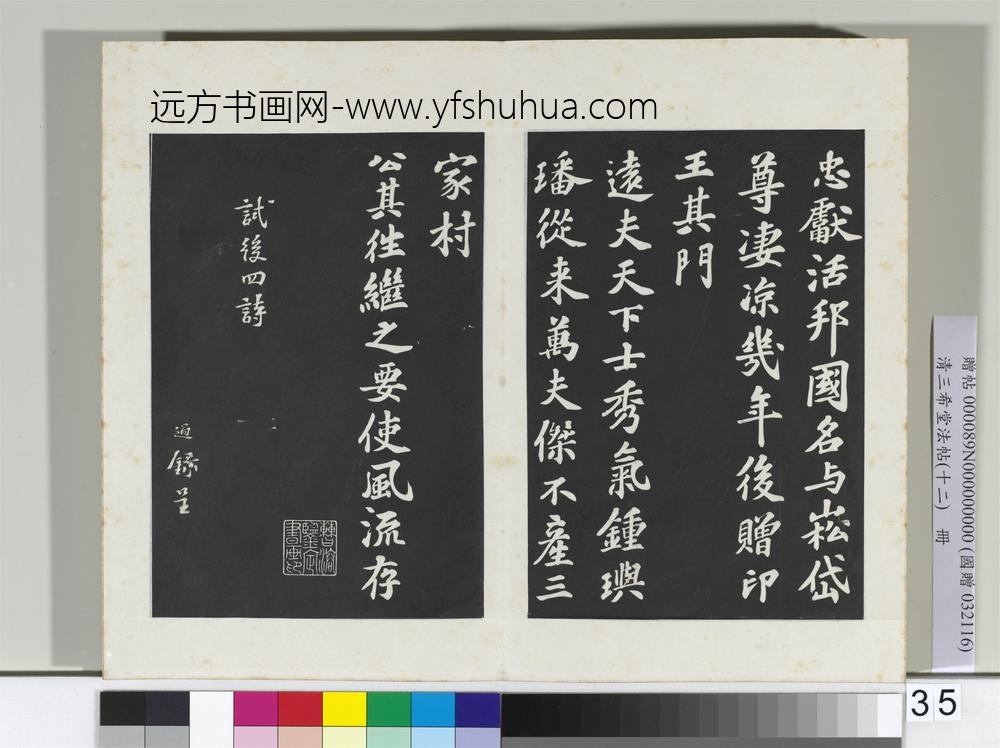 远方书画网-www.yfshuhua.com
忠獻活邦國名与崧岱
尊淒凉幾年後贈印
王其門
遠夫天下士秀氣鍾璵
璠從来萬夫傑不產三
家村
公其徃繼之要使風流存
試後四詩
迥錄呈
贈帖 000089N000000000 (國贈 032116)
清三希堂法帖(十二) 冊
35